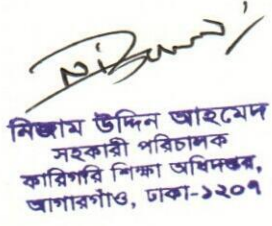 নিজাম উদ্দিন আহমেদ
সহকারী পরিচালক
কারিগরি শিক্ষা অধিদপ্তর,
আগারগাঁও, ঢাকা-১২০৭